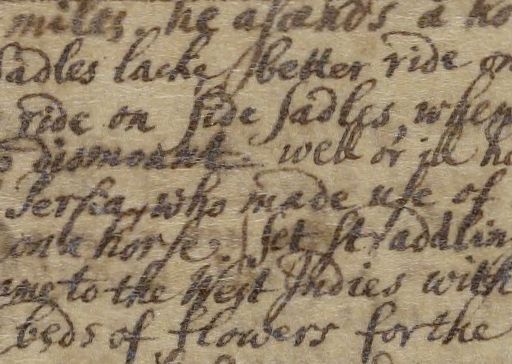 miles, he ascends a ho
sadles lacke, better ride on
ride on side sadles, when
dismount. well or ill ho
Persia, who made use of
one horse. set stradlin
ame to the West Indies with
beds of flowers for the